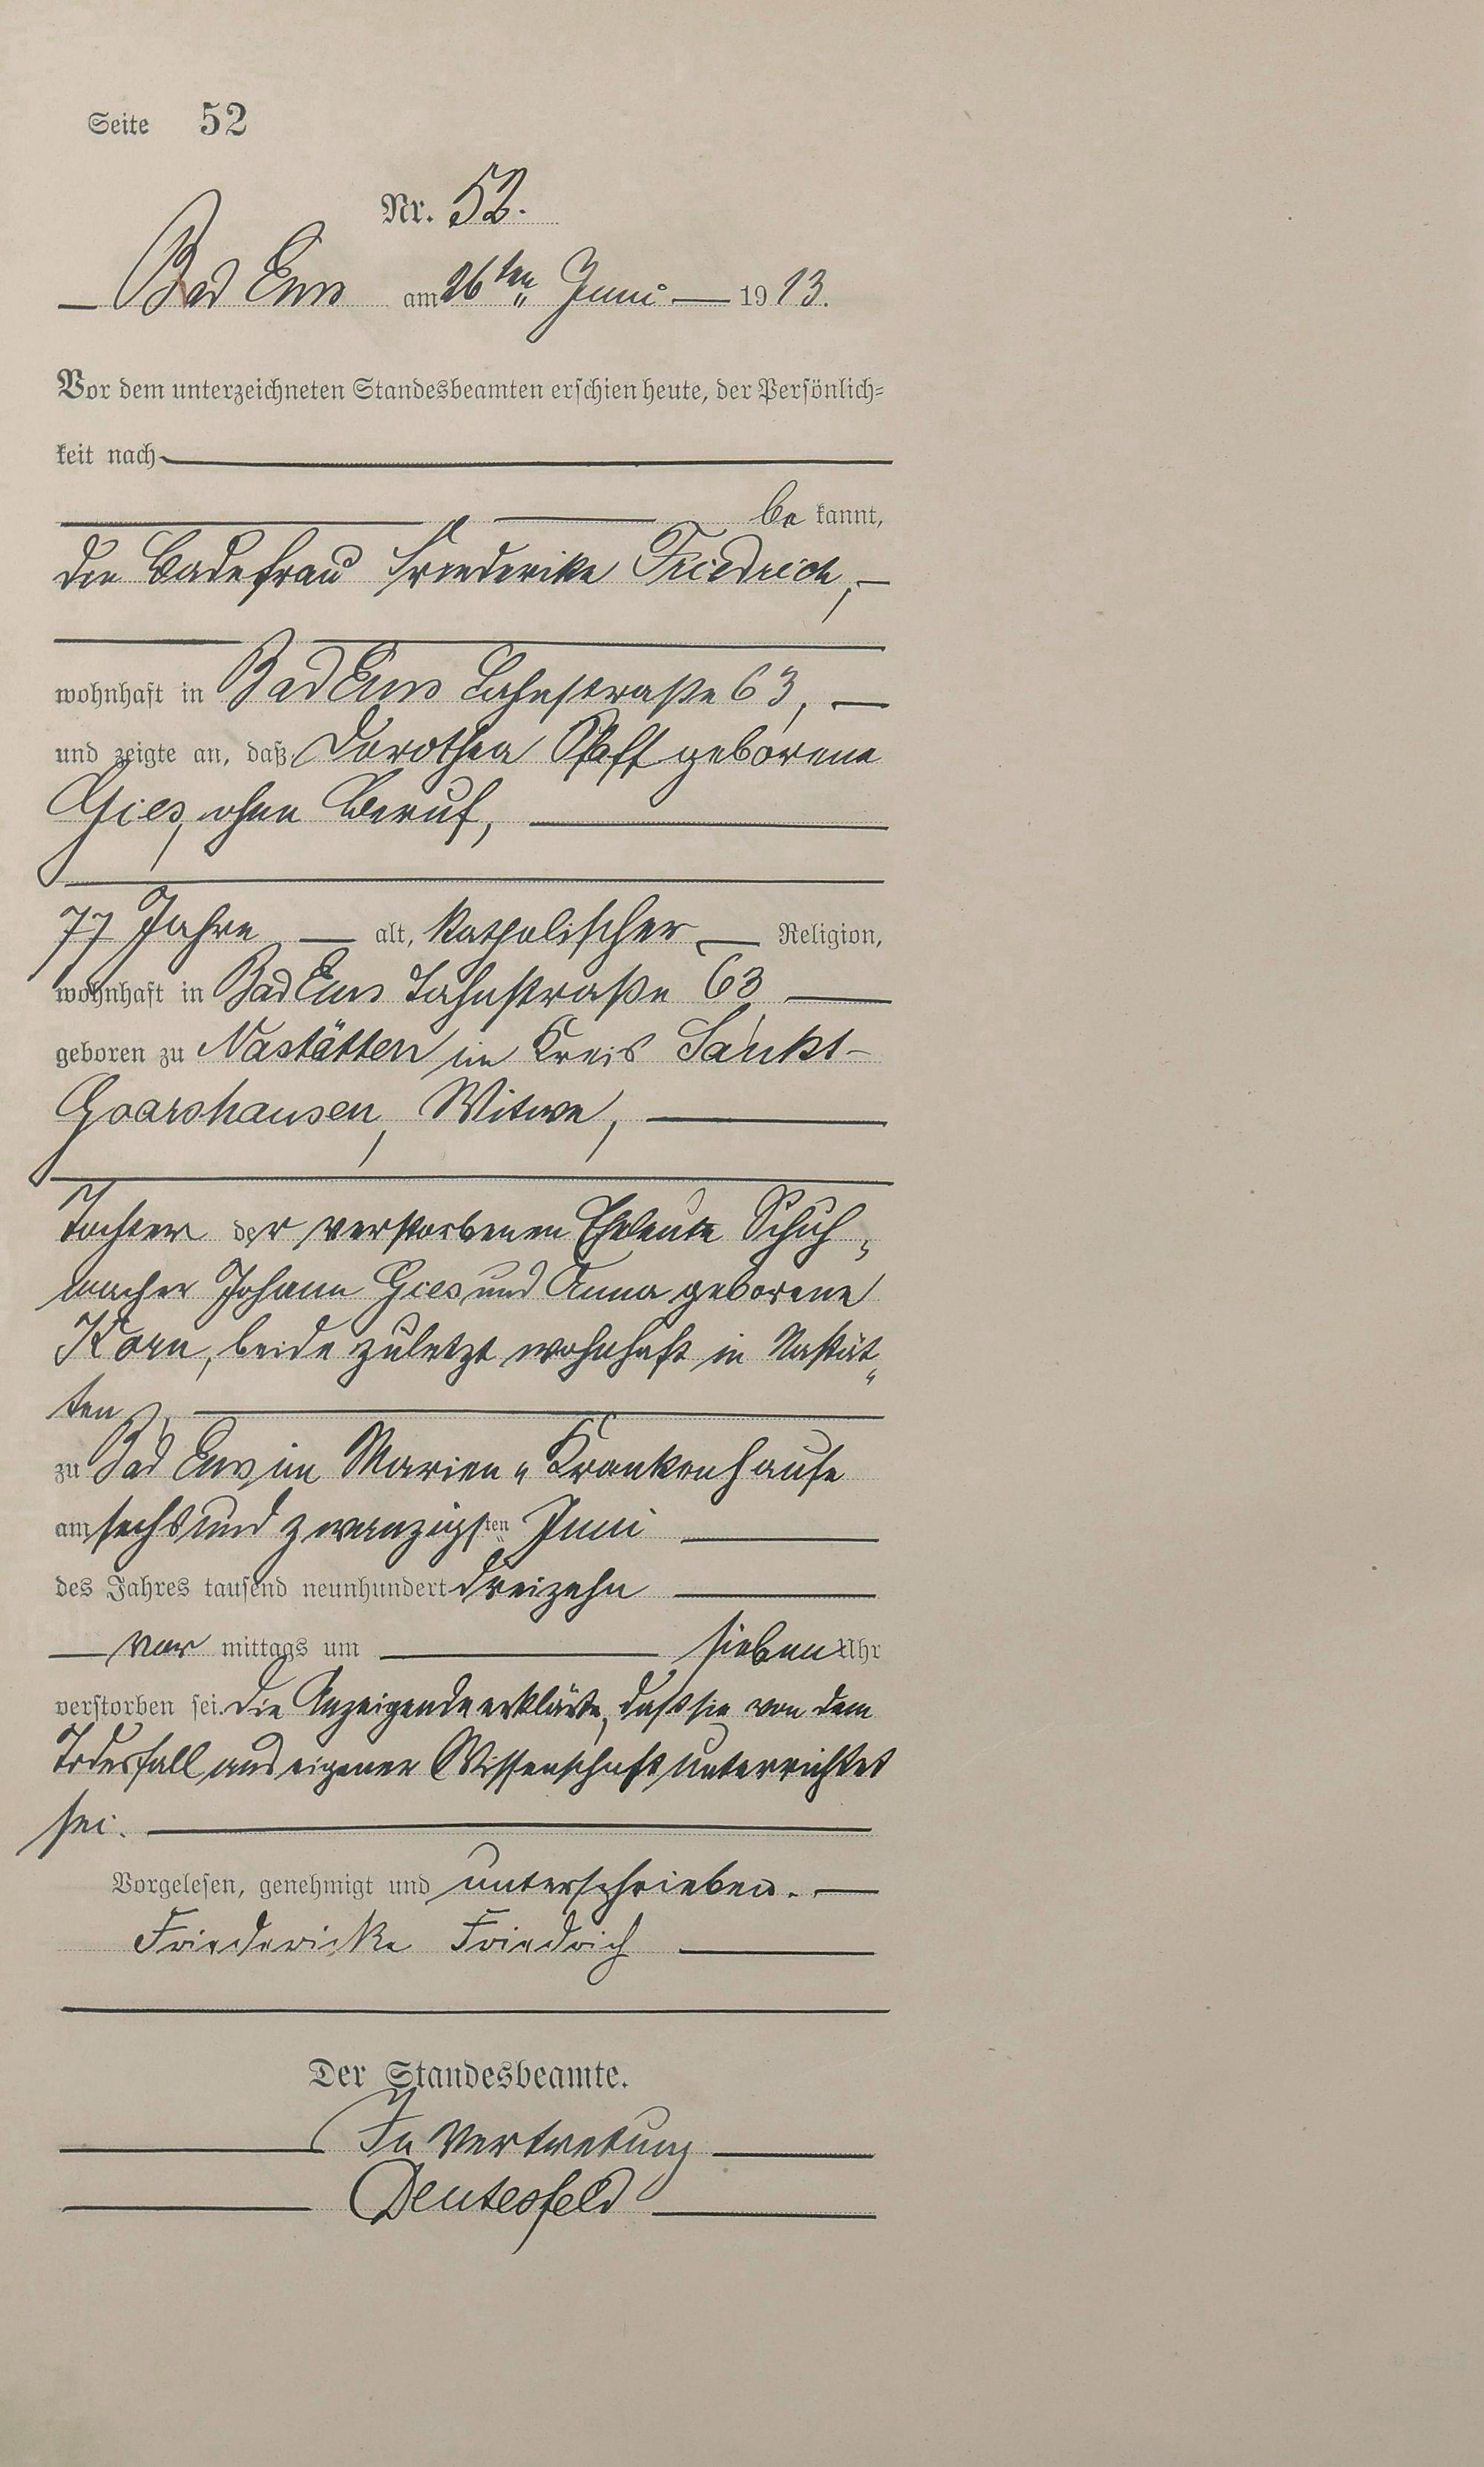 Seite 52
Nr. 52.
Bad Ems am 26ten Juni 1913.
Vor dem unterzeichneten Standesbeamten erschien heute, der Persönlich=
keit nach
be kannt,
die Badefrau Friederike Friedrich,
wohnhaft in Bad Ems Lahnstraße 63,
und zeigte an, daß Dorothea Pfaff geborene
Gies, ohne Beruf,
77 Jahre alt, katholischer Religion,
wohnhaft in Bad Ems Lahnstraße 63
geboren zu Nastätten im Kreis Sankt-
Goarshausen, Witwe,
Tochter der verstorbenen Eheleute Schuh-
macher Johann Gies und Anna geborene
Korn, beide zuletzt wohnhaft in Nastät-
ten,
zu Bad Ems im Marien-Krankenhause
am sechsundzwanzigsten Juni
des Jahres tausend neunhundert dreizehn
vor mittags um sieben Uhr
verstorben sei. Die Anzeigende erklärte, daß sie von dem
Todesfall aus eigener Wissenschaft unterrichtet
sei.
Vorgelesen, genehmigt und unterschrieben.
Friedericke Friedrich
Der Standesbeamte.
In Vertretung
Deutesfeld